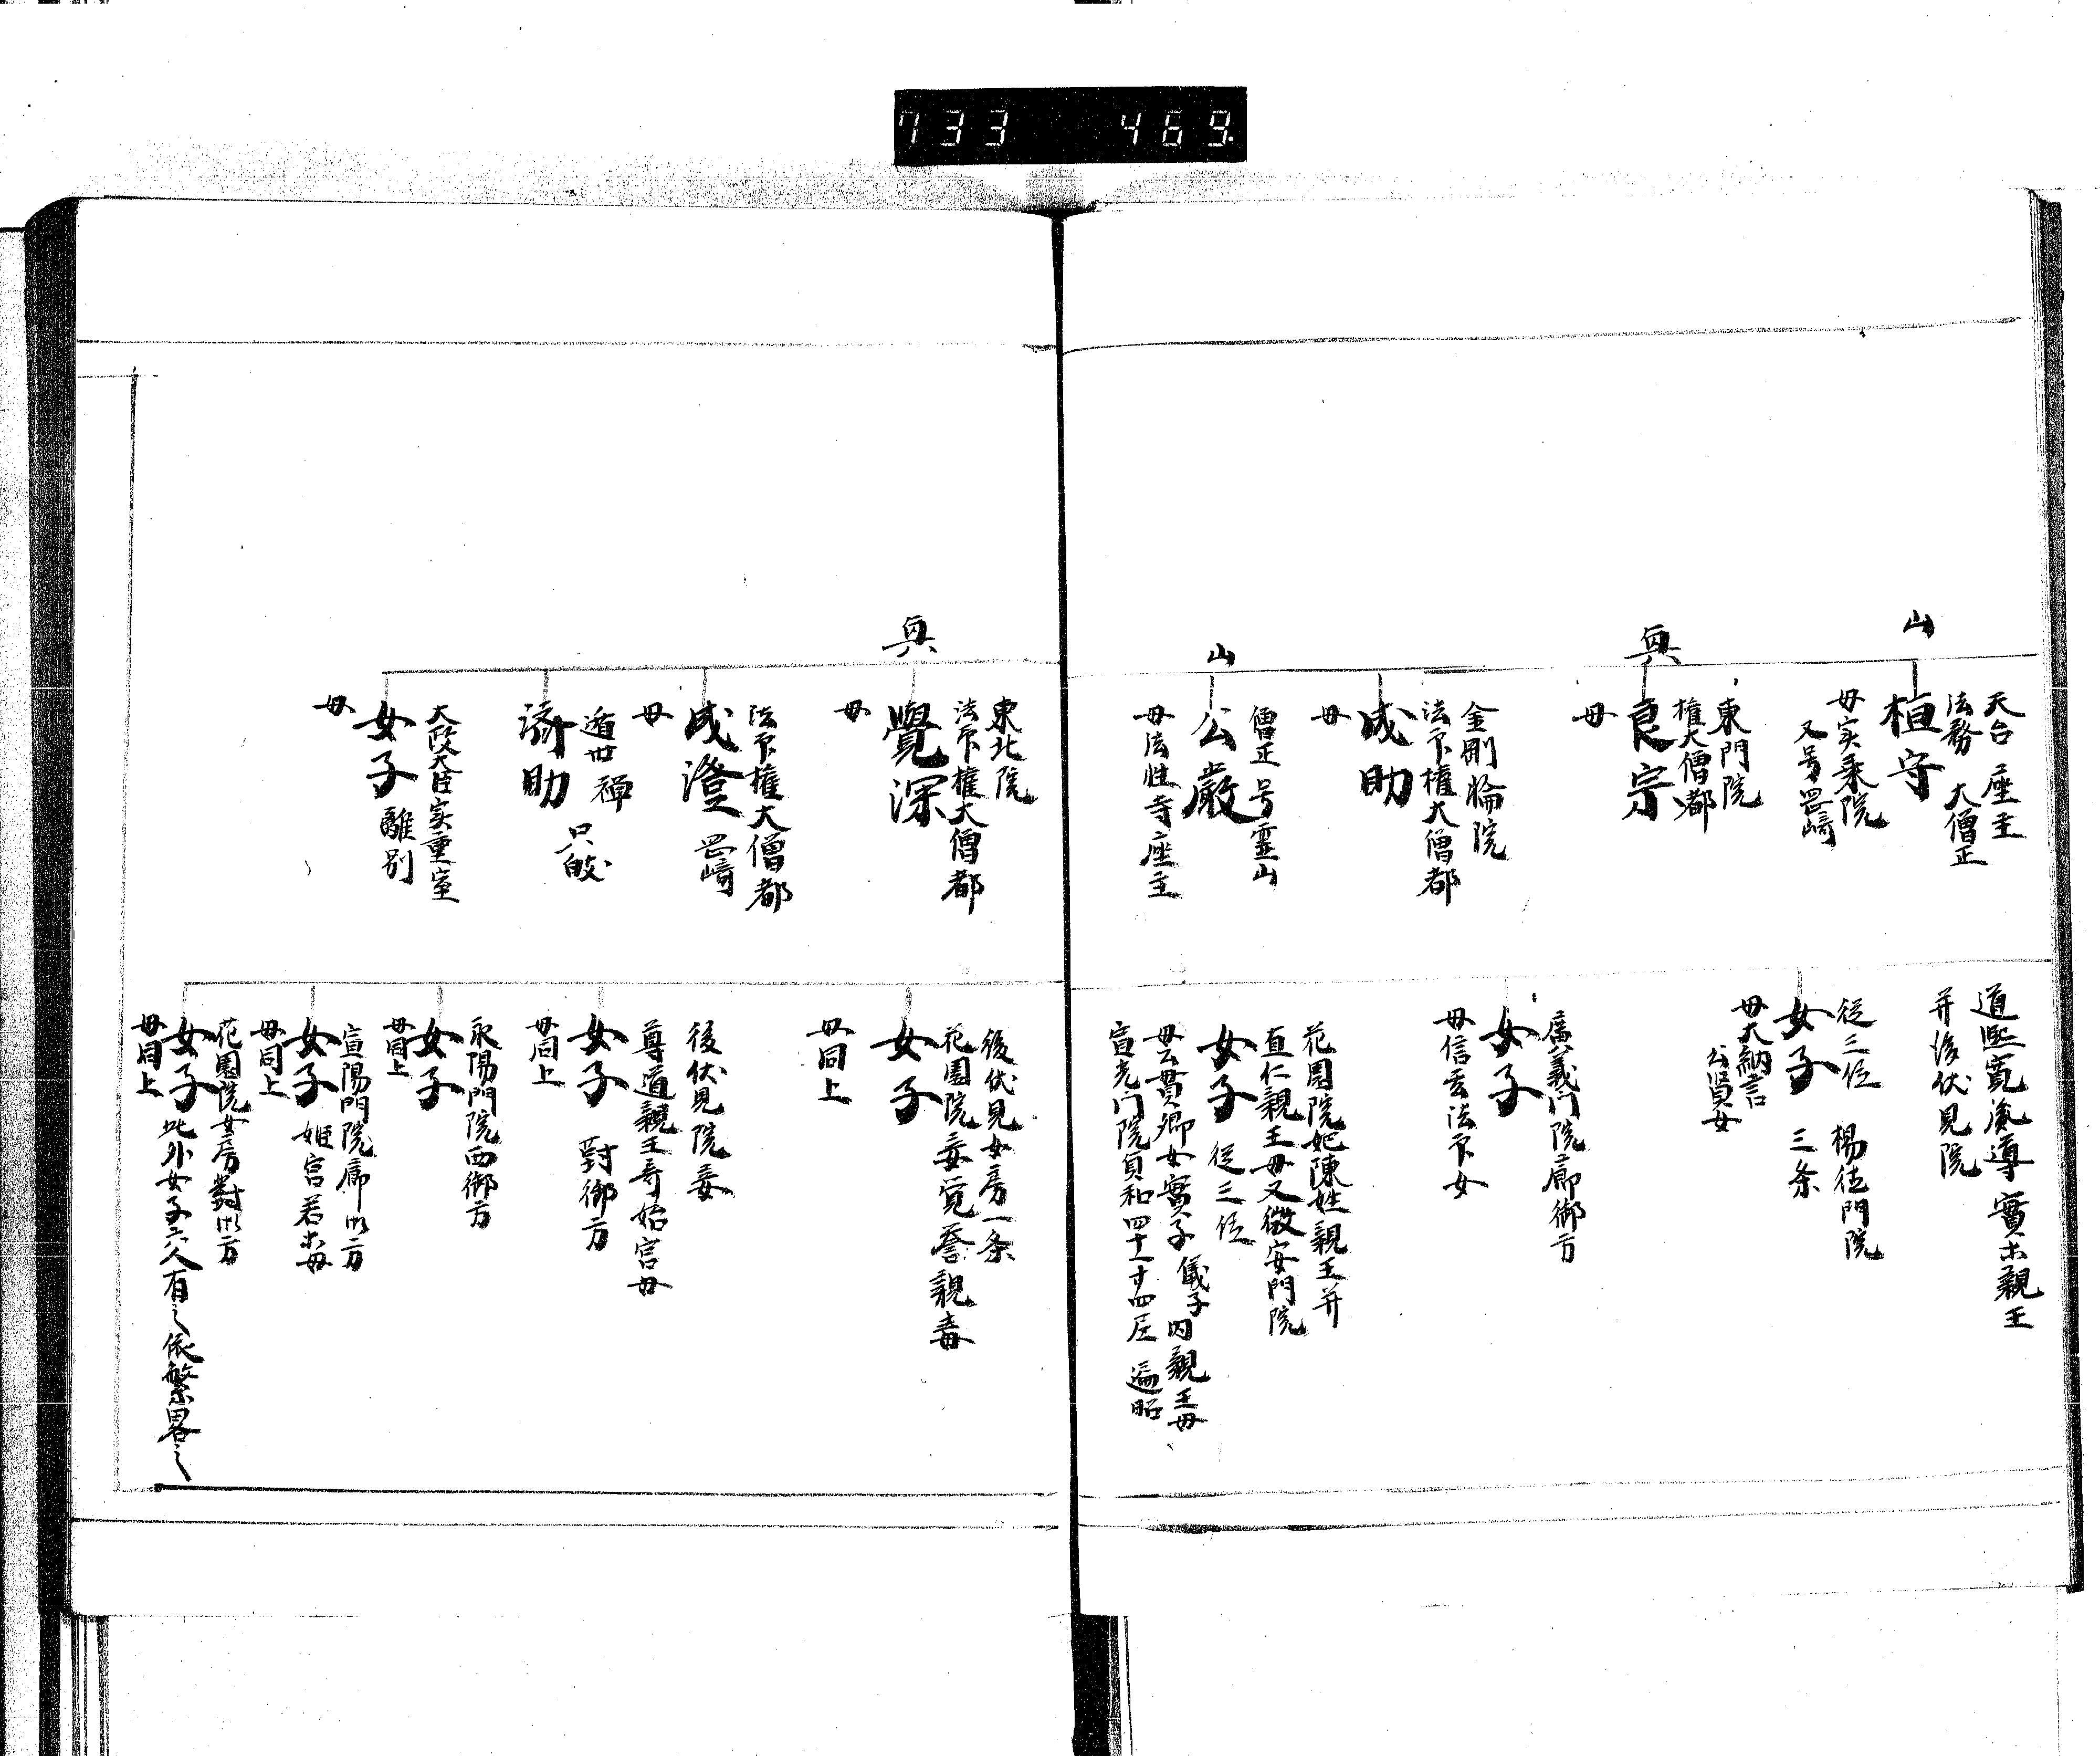 733 469
山
天台座主
法務 大僧正
桓守
母实乗院
又号罡崎
興
東門院
権大僧都
良宗
母
金剛輪院
法印権大僧都
成助
母
山
僧正 号霊山
公厳
母法性寺座主
道熙寛胤尊實ホ親王
并後伏見院
従三位 楊徳門院
女子 三条
母大納言
公貫女
廣義門院廊御方
女子
母信雲法印女
花園院妃陳姓親王并
直仁親王母又徽安門院
女子 従三位
母公貫卿女實子 儀子内親王母
宣光門院貞和四十一廿四尼 遍昭
興
東北院
法印権大僧都
覺深
母
法印権大僧都
成澄 罡崎
母
遁世 禅
済助 只皎
大政大臣实重室
女子 離別
母
後伏見女房一条
花園院妾覚誉親毒
女子
母同上
後伏見院妾
尊道親王寿始宮母
女子 對御方
母同上
永陽門院西御方
女子
母同上
宣陽門院廊御方
女子 姫宮若ホ母
母同上
花園院女房對御方
女子 此外女子六人有之依繁畧之
母同上